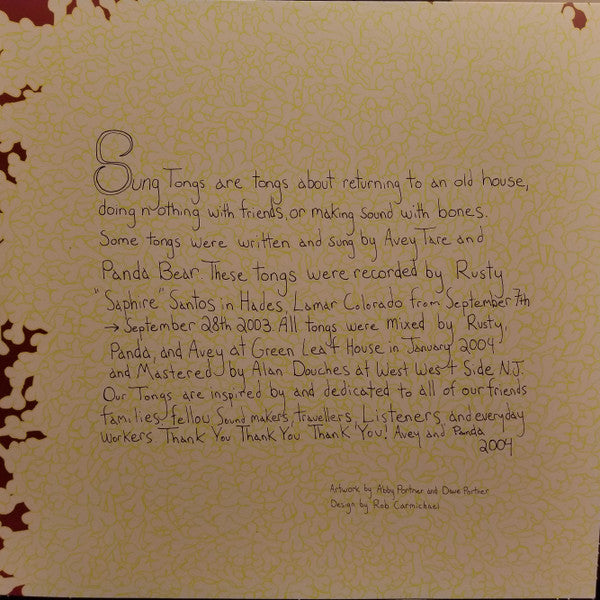 Sung Tongs are tongs about returning to an old house,
doing nothing with friends, or making sound with bones.
Some tongs were written and sung by Avey Tare and
Panda Bear. These tongs were recorded by Rusty
"Saphire" Santos in Hades, Lamar Colorado from September 7th
→ September 28th 2003. All tongs were mixed by Rusty,
Panda, and Avey at Green Leaf House in January 2004
and Mastered by Alan Douches at West West Side N.J.
Our Tongs are inspired by and dedicated to all of our friends
families, fellow sound makers, travellers, Listeners, and everyday
workers Thank You Thank You Thank You! Avey and Panda
2004
Artwork by Abby Portner and Dave Portner
Design by Rob Carmichael